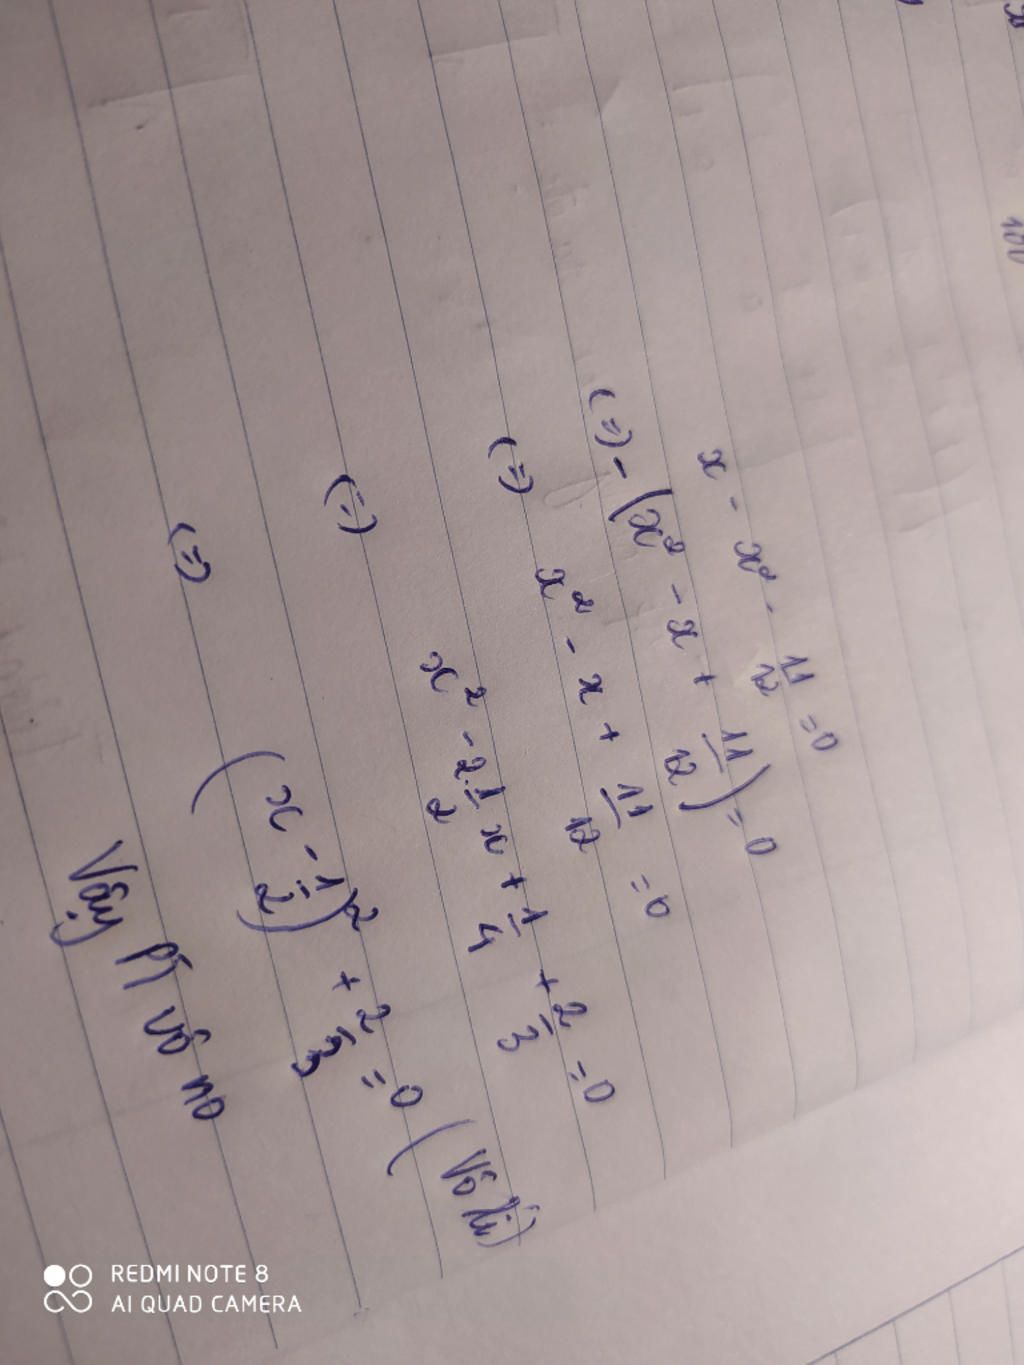 x - x² - 11/12 = 0
(=) - (x² - x + 11/12) = 0
(=) x² - x + 11/12 = 0
(=) x² - 2.1/2 x + 1/4 + 2/3 = 0
(=) (x - 1/2)² + 2/3 = 0 (Vô lí)
Vậy PT vô no
100
REDMI NOTE 8
AI QUAD CAMERA